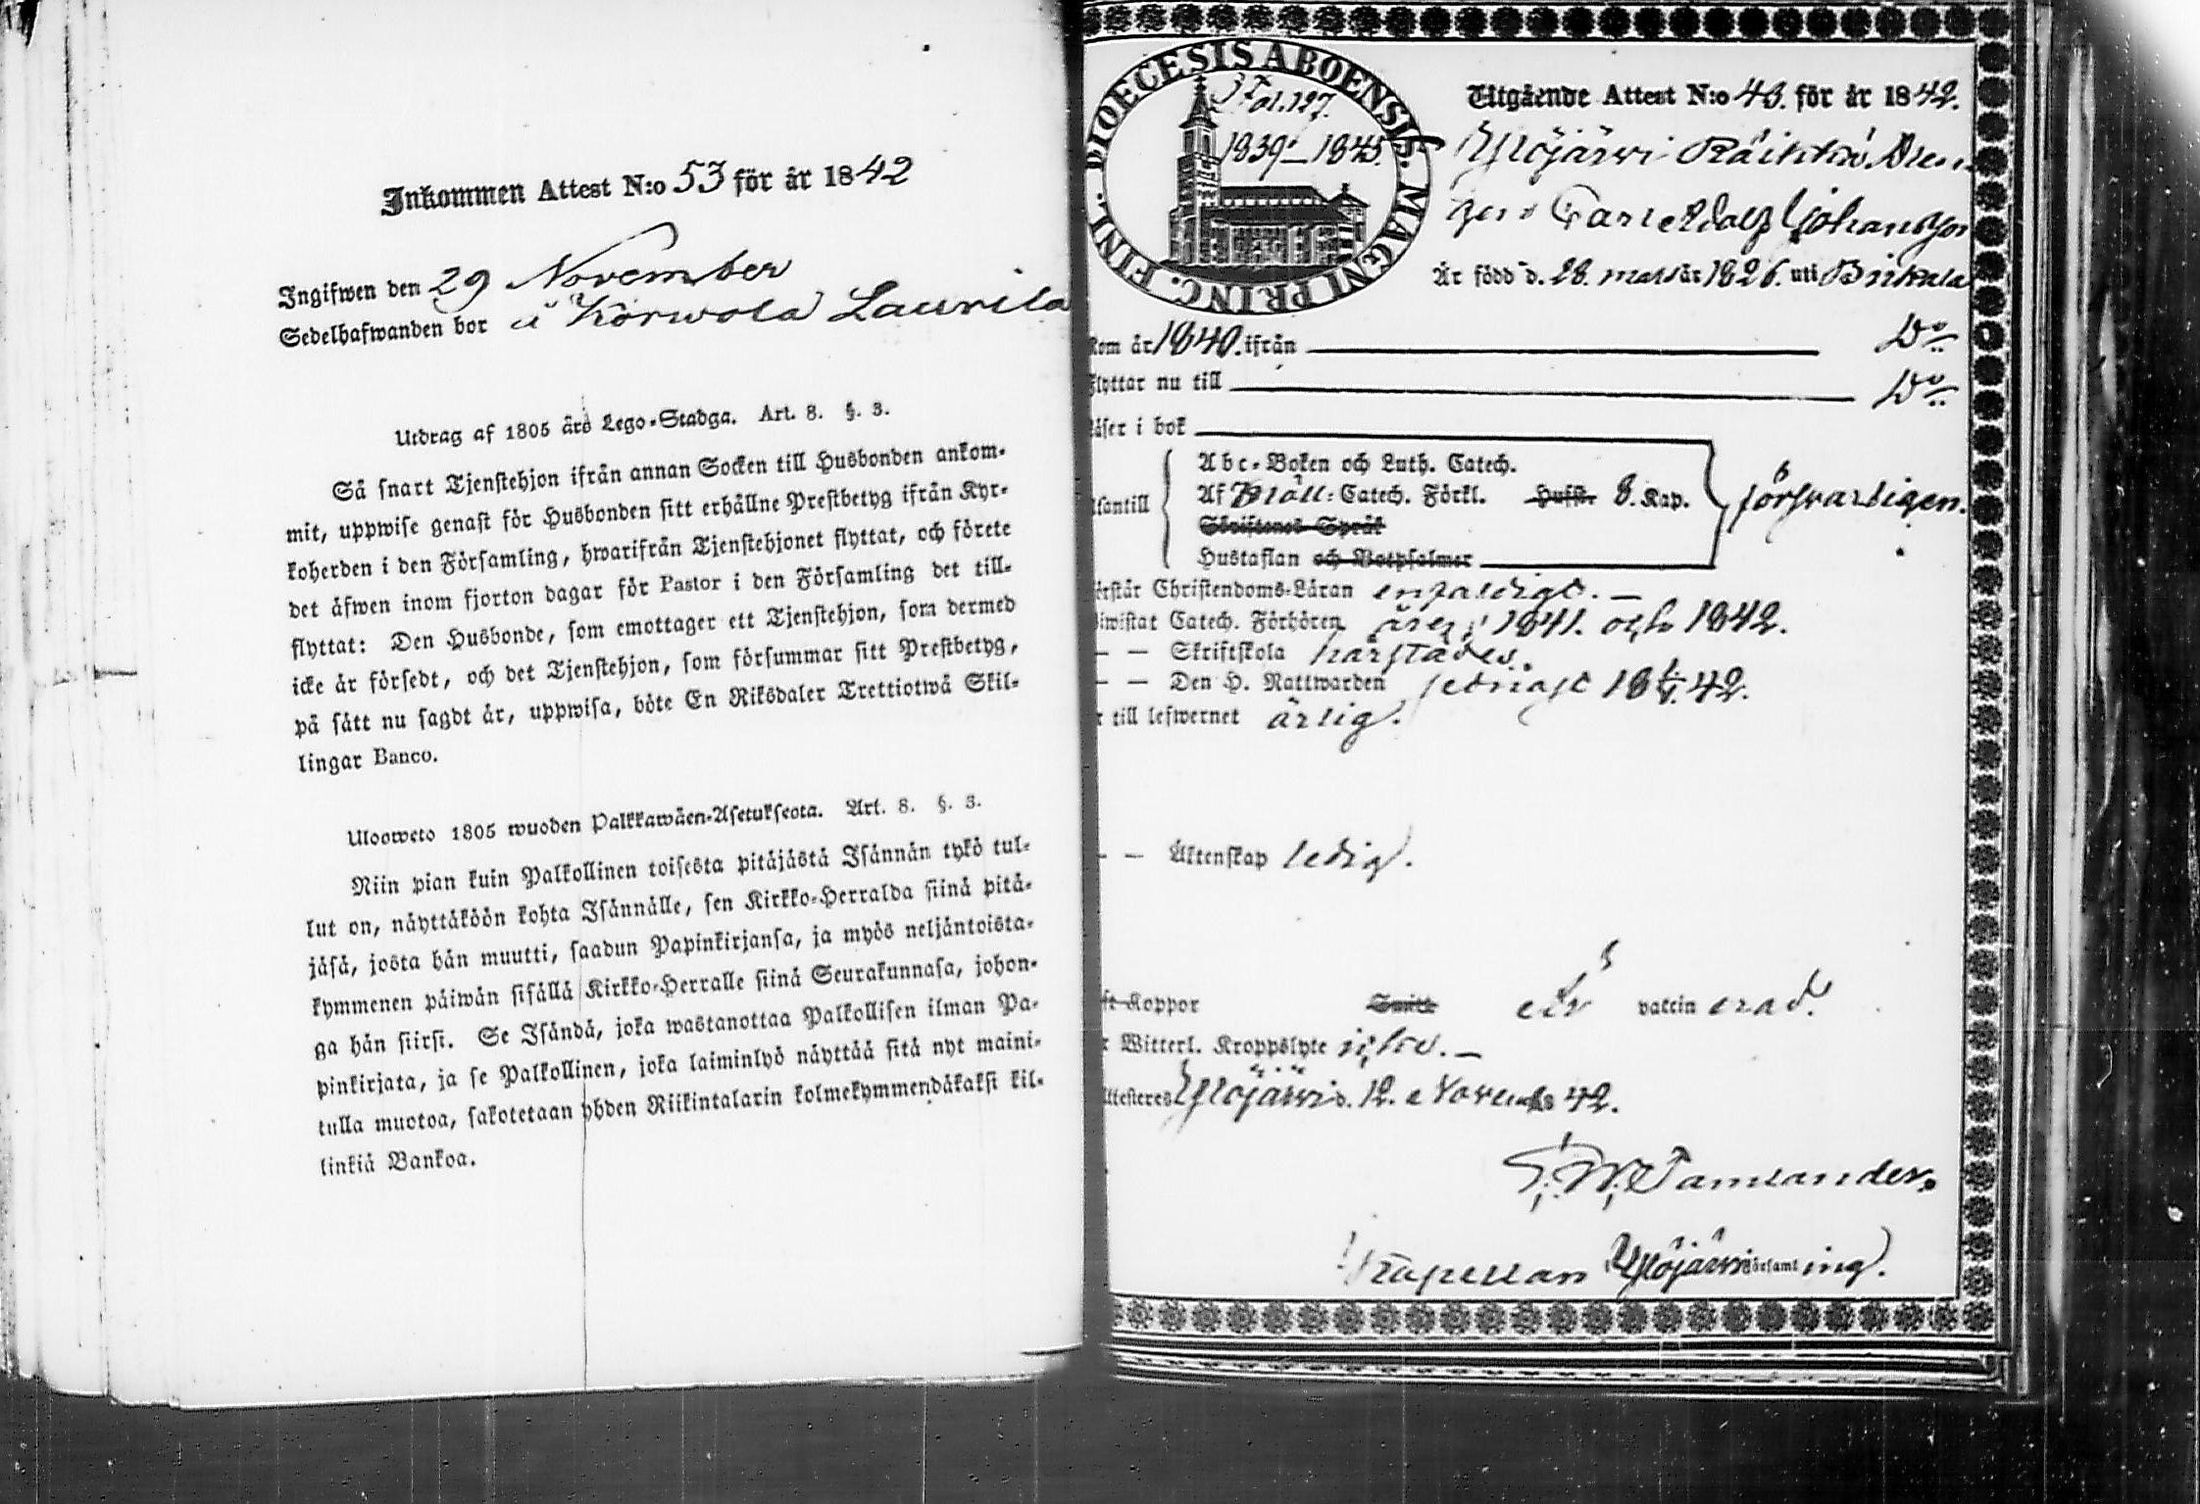 Inkommen Attest N:o 53 för år 1842
Ingifwen den 29 November
Sedelhafwanden bor å Korwola Laurila
Utdrag af 1805 års Lego-Stadga. Art. 8. §. 3.
Så snart Tjenstehjon ifrån annan Socken till Husbonden ankom-
mit, uppwise genast för Husbonden sitt erhållne Prestbetyg ifrån Kyr-
koherden i den Församling, hwarifrån Tjenstehjonet flyttat, och förete
det äfwen inom fjorton dagar för Pastor i den Församling det till-
flyttat: Den Husbonde, som emottager ett Tjenstehjon, som dermed
icke är försedt, och det Tjenstehjon, som försummar sitt Prestbetyg,
på sätt nu sagdt är, uppwisa, böte En Riksdaler Trettiotwå Skil-
lingar Banco.
Ulosweto 1805 wuoden Palkkawäen-Asetuksesta. Art. 8. §. 3.
Niin pian kuin Palkollinen toisesta pitäjästä Isännän tykö tul-
lut on, näyttäköön kohta Isännälle, sen Kirkko-Herralda siinä pitä-
jäsä, josta hän muutti, saadun Papinkirjansa, ja myös neljäntoista-
kymmenen päiwän sisällä Kirkko-Herralle siinä Seurakunnasa, johon-
ga hän siirsi. Se Isändä, joka wastanottaa Palkollisen ilman Pa-
pinkirjata, ja se Palkollinen, joka laiminlyö näyttää sitä nyt maini-
tulla muotoa, sakotetaan yhden Riikintalarin kolmekymmendäkaksi kil-
linkiä Bankoa.
DIOECESIS ABOENSIS. MAGNI PRINC. FINL.
Fol. 127.
1839–1845.
Utgående Attest N:o 43. för år 1842.
Ylöjärwi Räikkä Dren
gen Carl Adolf Johansson
Är född d. 28. mars år 1826. uti Birkala
Kom år 1840. ifrån D:o
Flyttar nu till D:o
Läser i bok
Abc-Boken och Luth. Catech.
Af Catech. Förkl. Hufst. 8. Kap.
Skriftenes Språk
Hustaflan och Botpsalmer
försvarligen.
Förstår Christendoms-Läran enfaldigt.
Biwistat Catech. Förhören åren 1841. och 1842.
— — Skriftskola härstädes.
— — Den H. Nattwarden sednast 42.
till lefwernet ärlig.
— — Äktenskap ledig.
Koppor vaccinerad.
Witterl. Kroppslyte
Attesteres Ylöjärwi d. 12. November 42.
Kapellan Ylöjärwi församling.